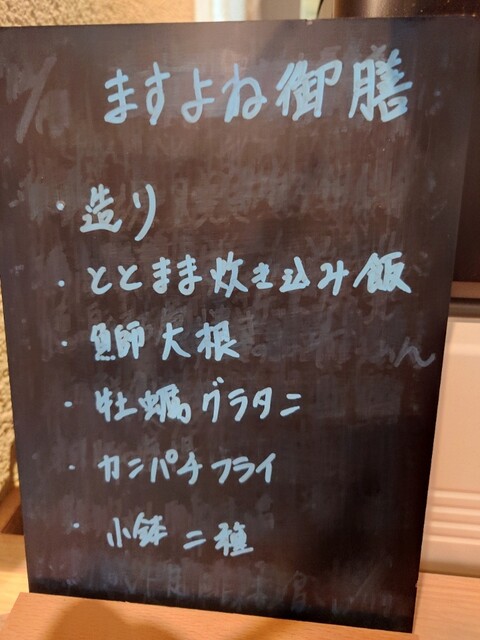 ますよね御膳
・造り
・ととまま炊き込み飯
・鰤大根
・牡蠣グラタン
・カンパチフライ
・小鉢二種